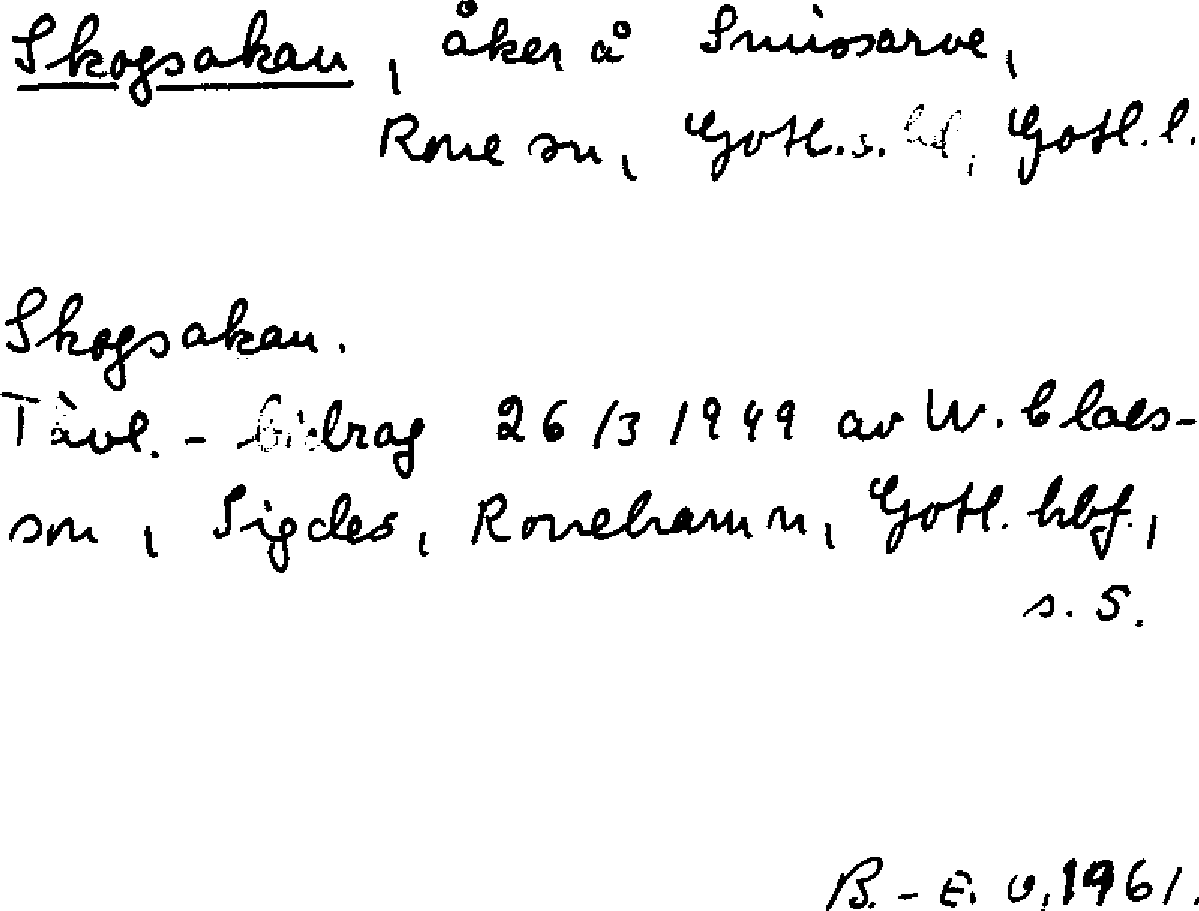 Skogsakau, åker å Smissarve,
Rone sn, Gotl.s. hd, Gotl. l.
Skogsakau.
Tävl. - bidrag 26/3 1949 av W. Claes-
son, Sigdes, Ronehamn, Gotl. hbf.,
s. 5.
B. - E. O, 1961.